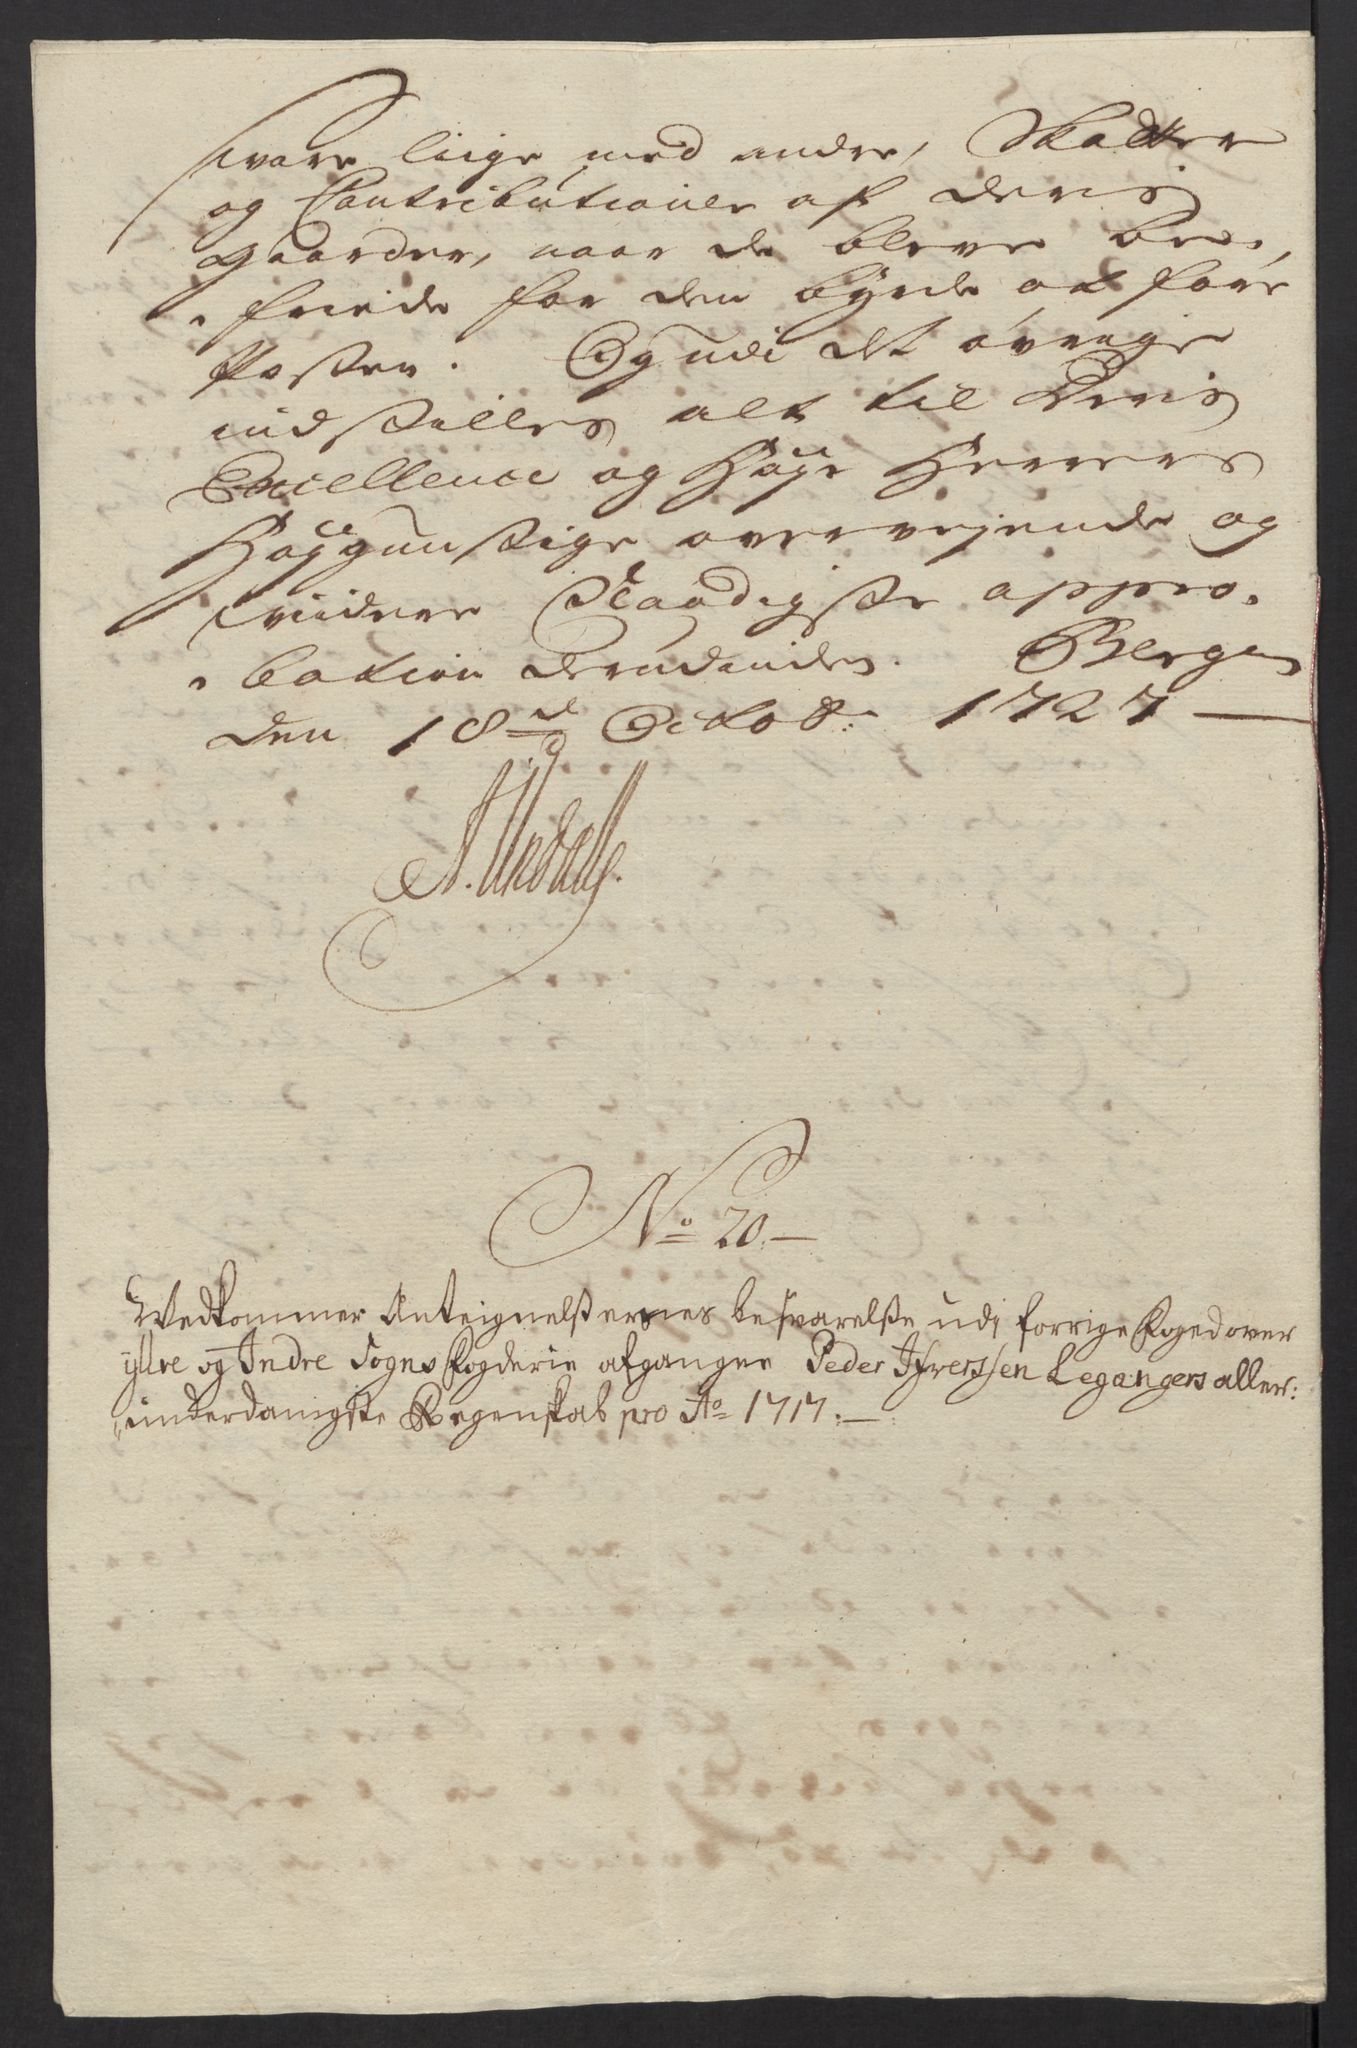 svare liige med andre, Skatter
og Contributioner af deris
gaarder, naar de bleve be,
friede for den byrde at føre
Posten. Og udi det øvrige
indstilles alt til Deris
Excellence og Høye Herrers
Høygunstige overvejende og
viidere Naadigste appro,
bation derudinden. Bergen
den 18de Octobr: 1727
A. Undall.
No 20.
Wedkommer Anteignelsternes besvarelse udj forrige foged over
yttre og Indre Sogns fogderie afgangne Peder Ifverssen Legangers aller:
underdanigste Regenskab pro Ao 1717.